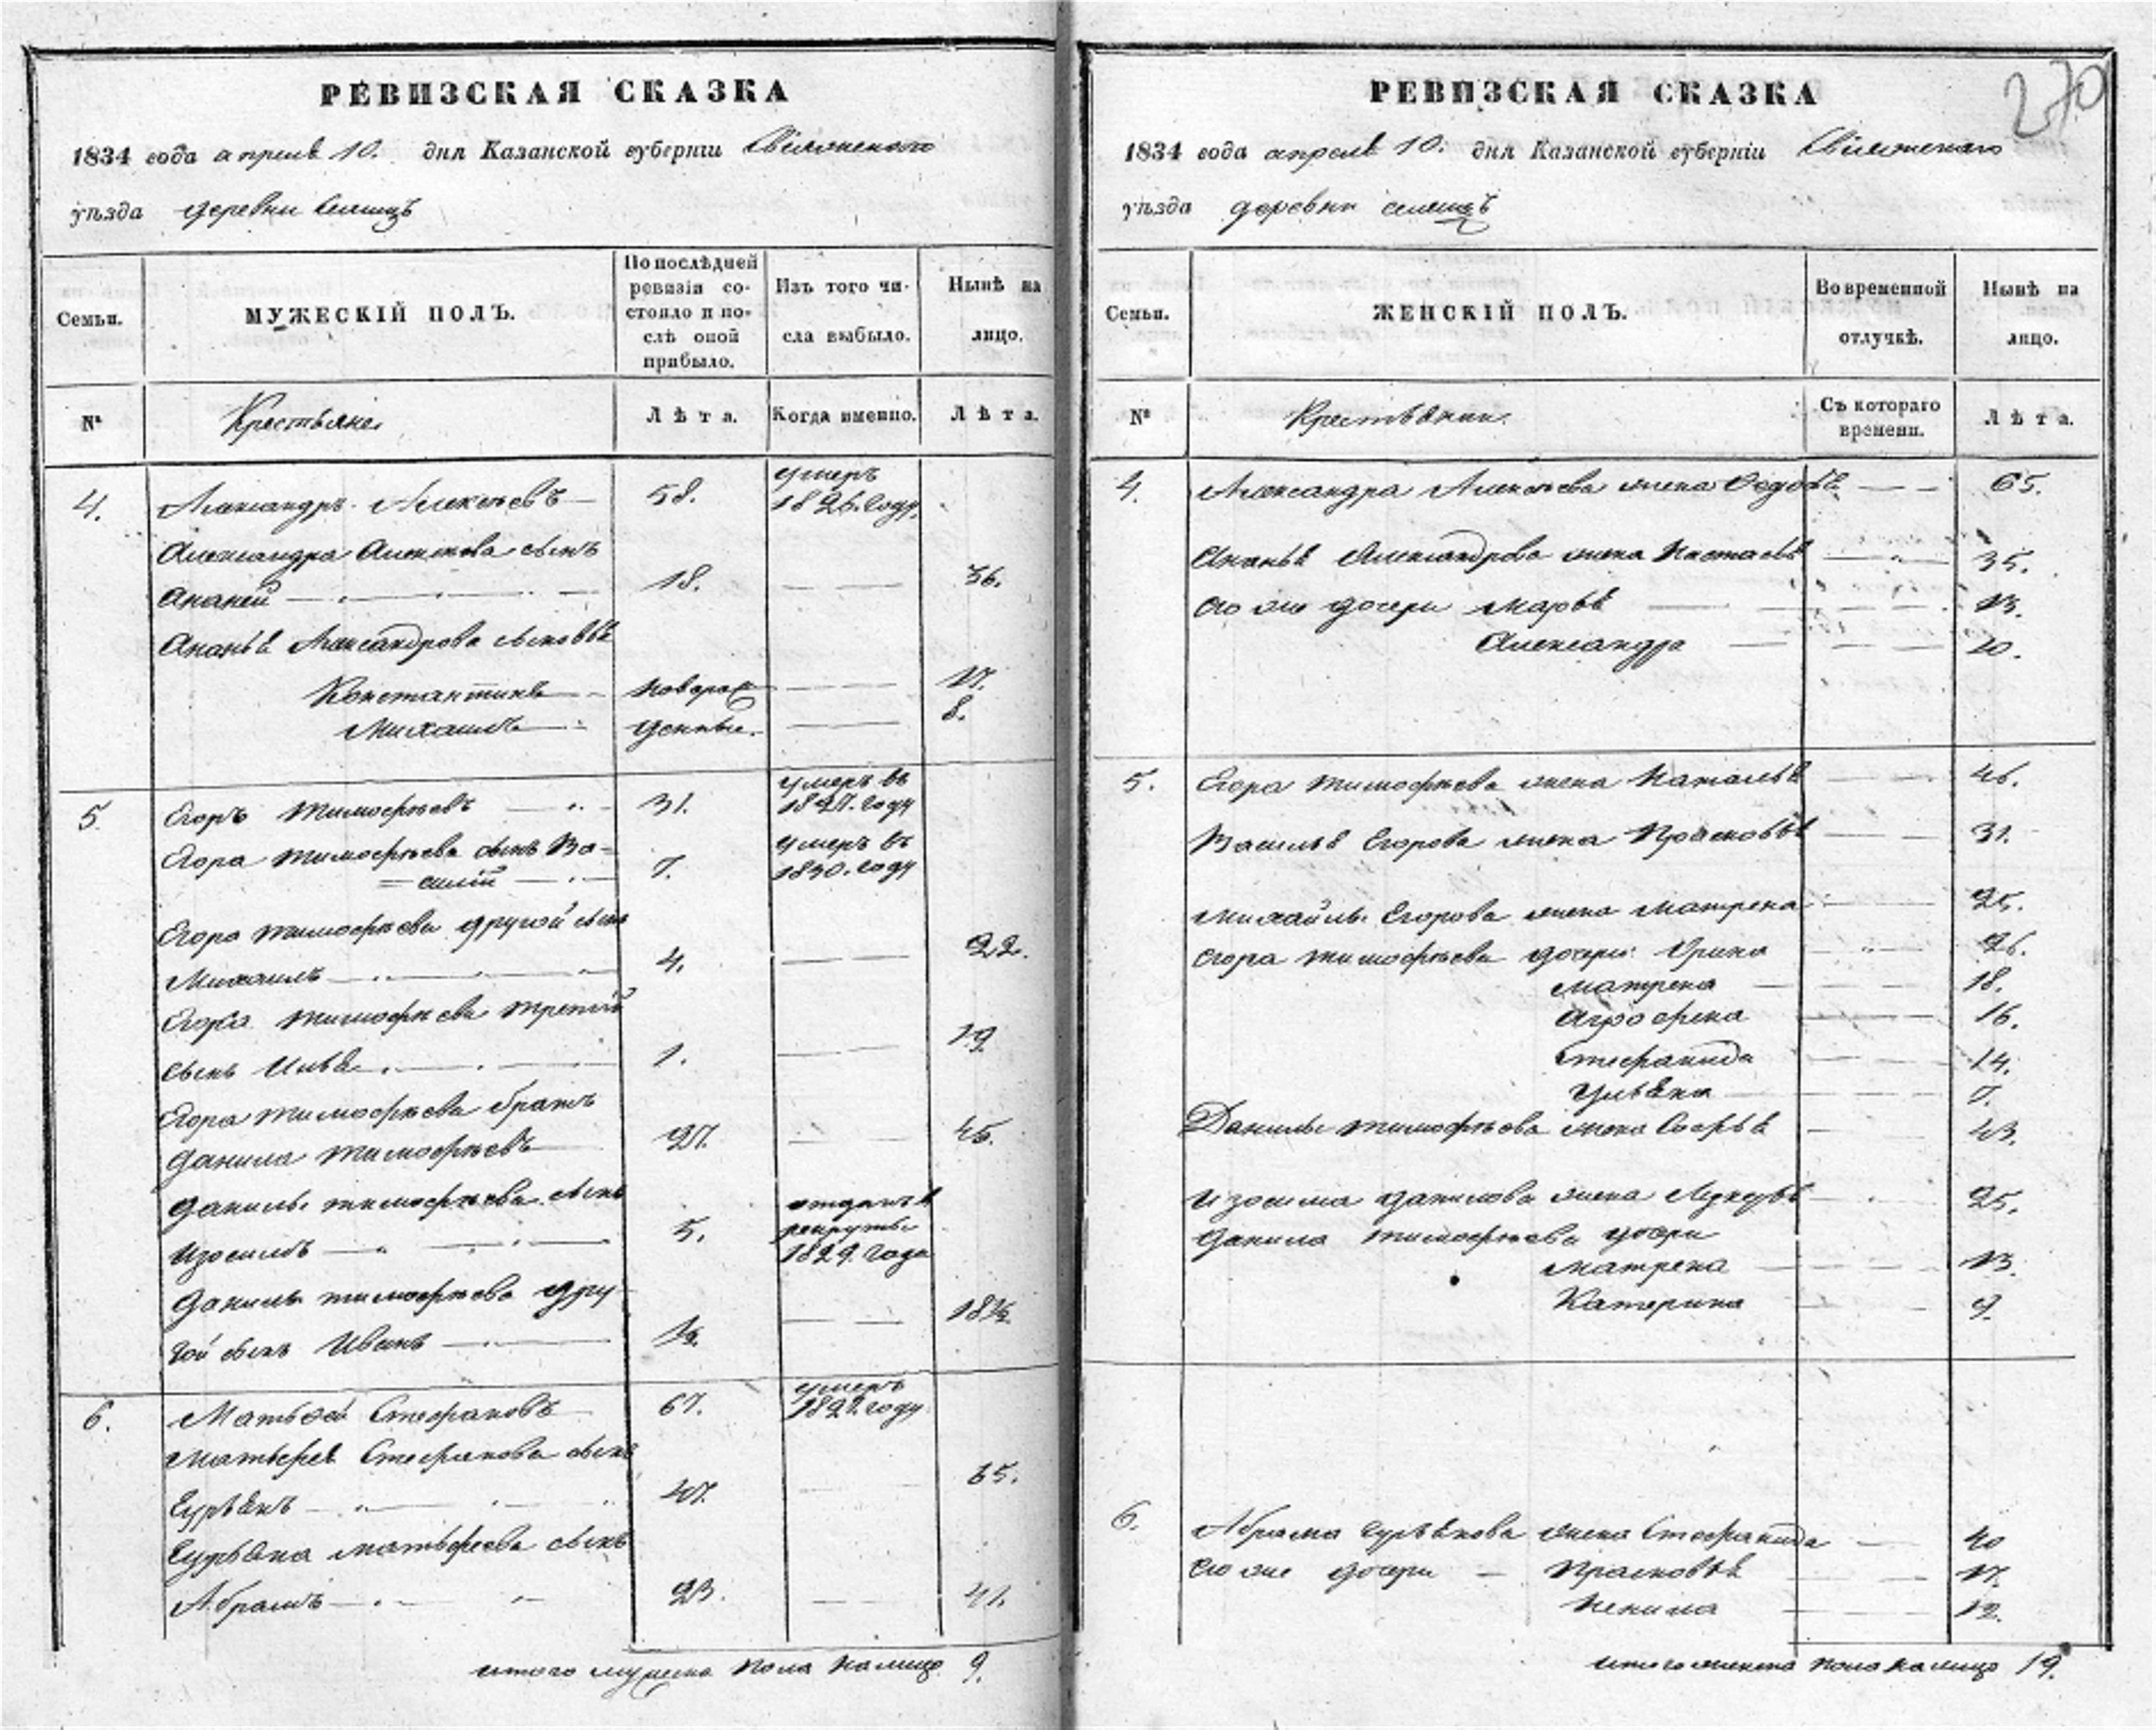 РЕВИЗСКАЯ СКАЗКА
1834 года апреля 10. дня Казанской губернiи Свiяжскаго
уѣзда деревни Селищъ
Семьи.
МУЖЕСКIЙ ПОЛЪ.
По послѣдней
ревизiи со-
стояло и по-
слѣ оной
прибыло.
Изъ того чи-
сла выбыло.
Нынѣ на
лицо.
№
Крестьяне
Лѣта.
Когда именно.
Лѣта.
4. Александръ Алексѣевъ 58. умеръ 1826. году.
Александра Алексѣева сынъ
Ананей 18. 36.
Ананья Александрова сыновья
Константинъ новорож 17.
Михаилъ денные. 8.
5 Егоръ Тимофѣевъ 31. умеръ въ 1827. году
Егора Тимофѣева сынъ Ва-
силiй 7. умеръ въ 1830. году
Егора Тимофѣева другой сынъ
Михаилъ 4. 22.
Егора Тимофѣева третiй
сынъ Илья 1. 19.
Егора Тимофѣева братъ
Данила Тимофѣевъ 27. 45.
Данилы Тимофѣева сынъ
Изосимъ 5. отданъ в рекруты 1829. года
Данилы Тимофѣева дру
гой сынъ Иванъ ½. 18½.
6. Матвей Стефановъ 67. умеръ 1827. году
Матвея Стефанова сынъ
Гурьянъ 47. 65.
Гурьяна Матвеева сынъ
Абрамъ 23. 41.
итого мужеска пола налицо 9.
270
РЕВИЗСКАЯ СКАЗКА
1834 года апреля 10. дня Казанской губернiи Свiяжскаго
уѣзда деревни селищъ
Семьи.
ЖЕНСКIЙ ПОЛЪ.
Во временной
отлучкѣ.
Нынѣ на
лицо.
№
Крестьянки.
Съ котораго
времени.
Лѣта.
4. Александра Алексѣева жена 65.
Ананья Александрова жена Настасья 35.
его же дочери Марья 13.
Александра 10.
5. Егора Тимофѣева жена Наталья 46.
Василья Егорова жена Прасковья 31.
Михайлы Егорова жена Матрена 25.
Егора Тимофѣева дочери: Ирина 26.
Матрена 18.
Агрофена 16.
Стефанида 14.
Ульяна 7.
Данилы Тимофѣева жена Софья 43.
Изосима Данилова жена Лукерья 25.
Данила Тимофѣева дочери
Матрена 13.
Катерина 9.
6. Абрама Гурьянова жена Стефанида 40
его же дочери Прасковья 17.
Ненила 12.
итого женска пола налицо 19.